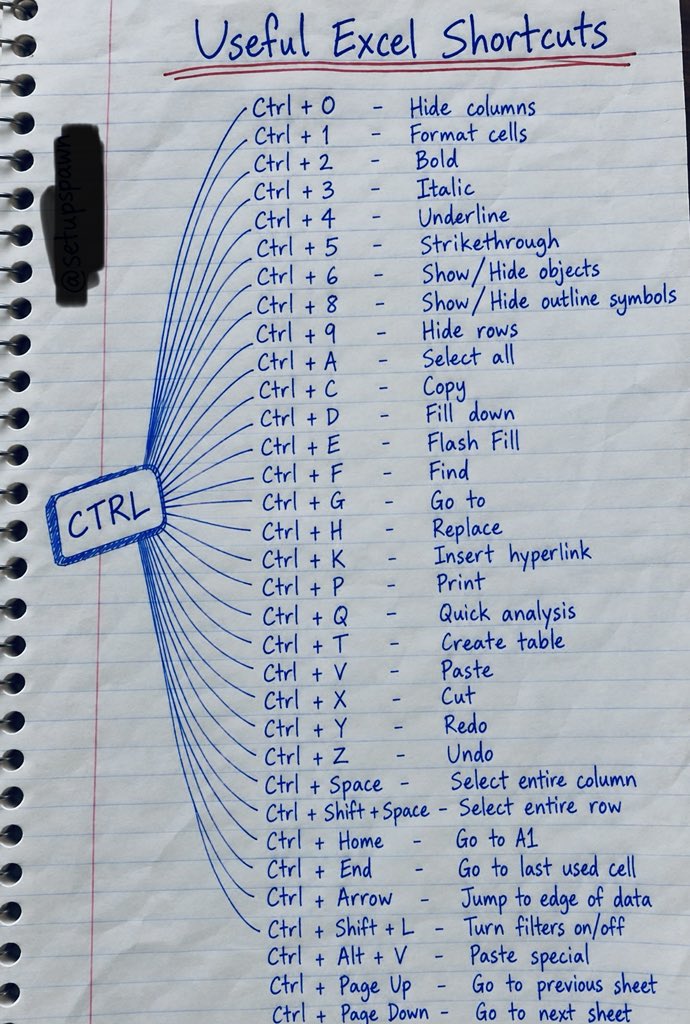 Useful Excel Shortcuts
@setupspawn
Ctrl + 0 - Hide columns
Ctrl + 1 - Format cells
Ctrl + 2 - Bold
Ctrl + 3 - Italic
Ctrl + 4 - Underline
Ctrl + 5 - Strikethrough
Ctrl + 6 - Show/Hide objects
Ctrl + 8 - Show/Hide outline symbols
Ctrl + 9 - Hide rows
Ctrl + A - Select all
Ctrl + C - Copy
Ctrl + D - Fill down
Ctrl + E - Flash Fill
Ctrl + F - Find
Ctrl + G - Go to
Ctrl + H - Replace
Ctrl + K - Insert hyperlink
Ctrl + P - Print
Ctrl + Q - Quick analysis
Ctrl + T - Create table
Ctrl + V - Paste
Ctrl + X - Cut
Ctrl + Y - Redo
Ctrl + Z - Undo
Ctrl + Space - Select entire column
Ctrl + Shift + Space - Select entire row
Ctrl + Home - Go to A1
Ctrl + End - Go to last used cell
Ctrl + Arrow - Jump to edge of data
Ctrl + Shift + L - Turn filters on/off
Ctrl + Alt + V - Paste special
Ctrl + Page Up - Go to previous sheet
Ctrl + Page Down - Go to next sheet
CTRL